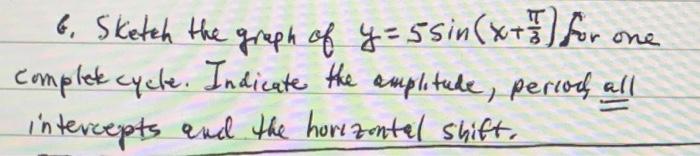 6. Sketch the graph of y = 5 sin(x + π/3) for one
complete cycle. Indicate the amplitude, period, all
intercepts and the horizontal shift.